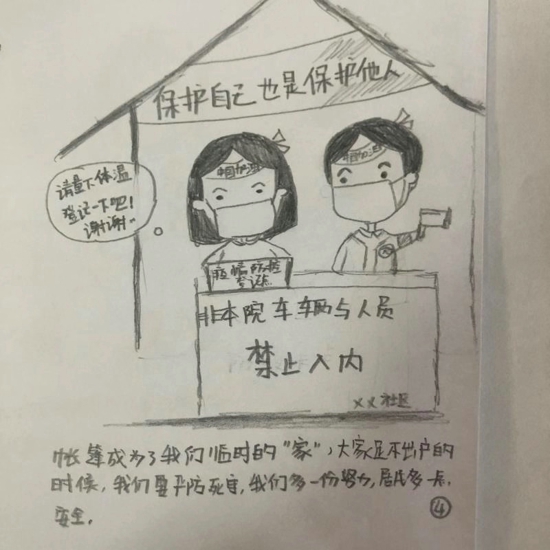 保护自己也是保护他人
中国加油
中国加油
请量下体温
登记一下吧!
谢谢..
疫情防控
登记
非本院车辆与人员
禁止入内
××社区
帐篷成为了我们临时的“家”,大家足不出户的
时候,我们要严防死守,我们多一份努力,居民多一点
安全。
④